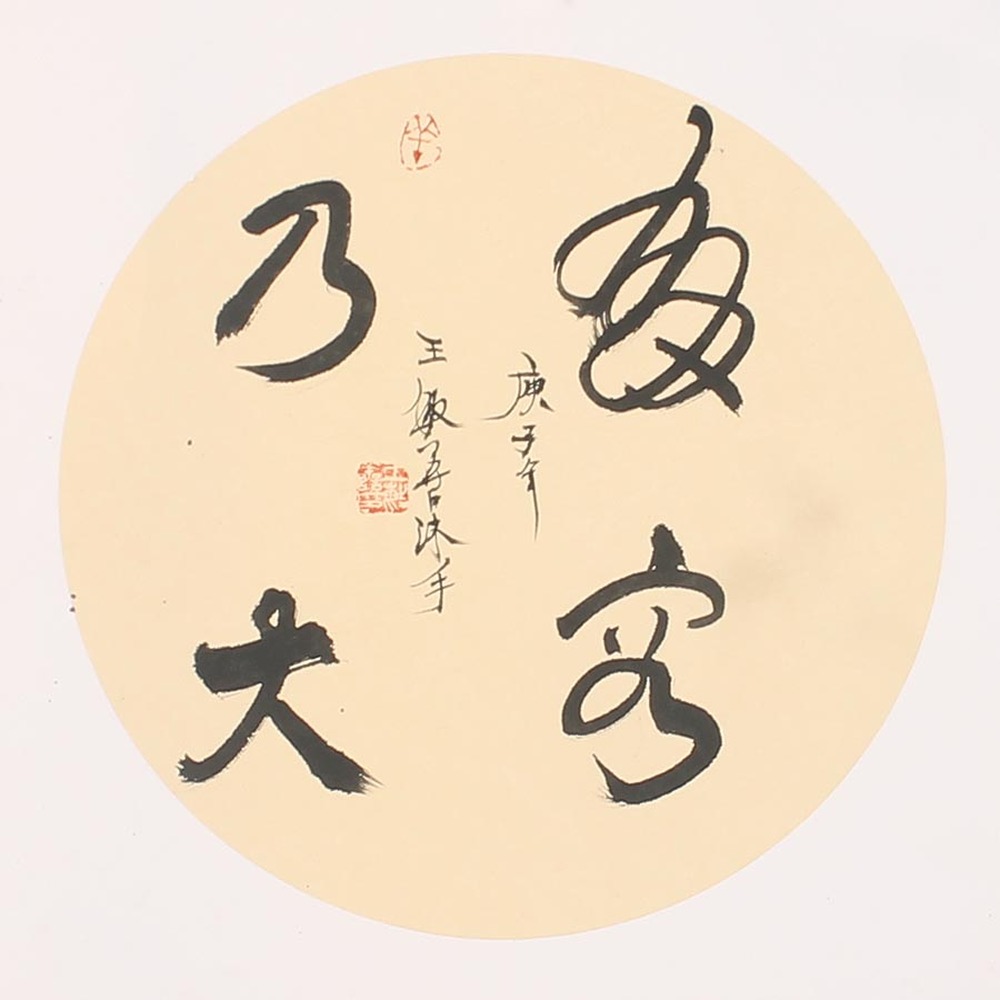 容
乃大
庚子年
王敏善沐手